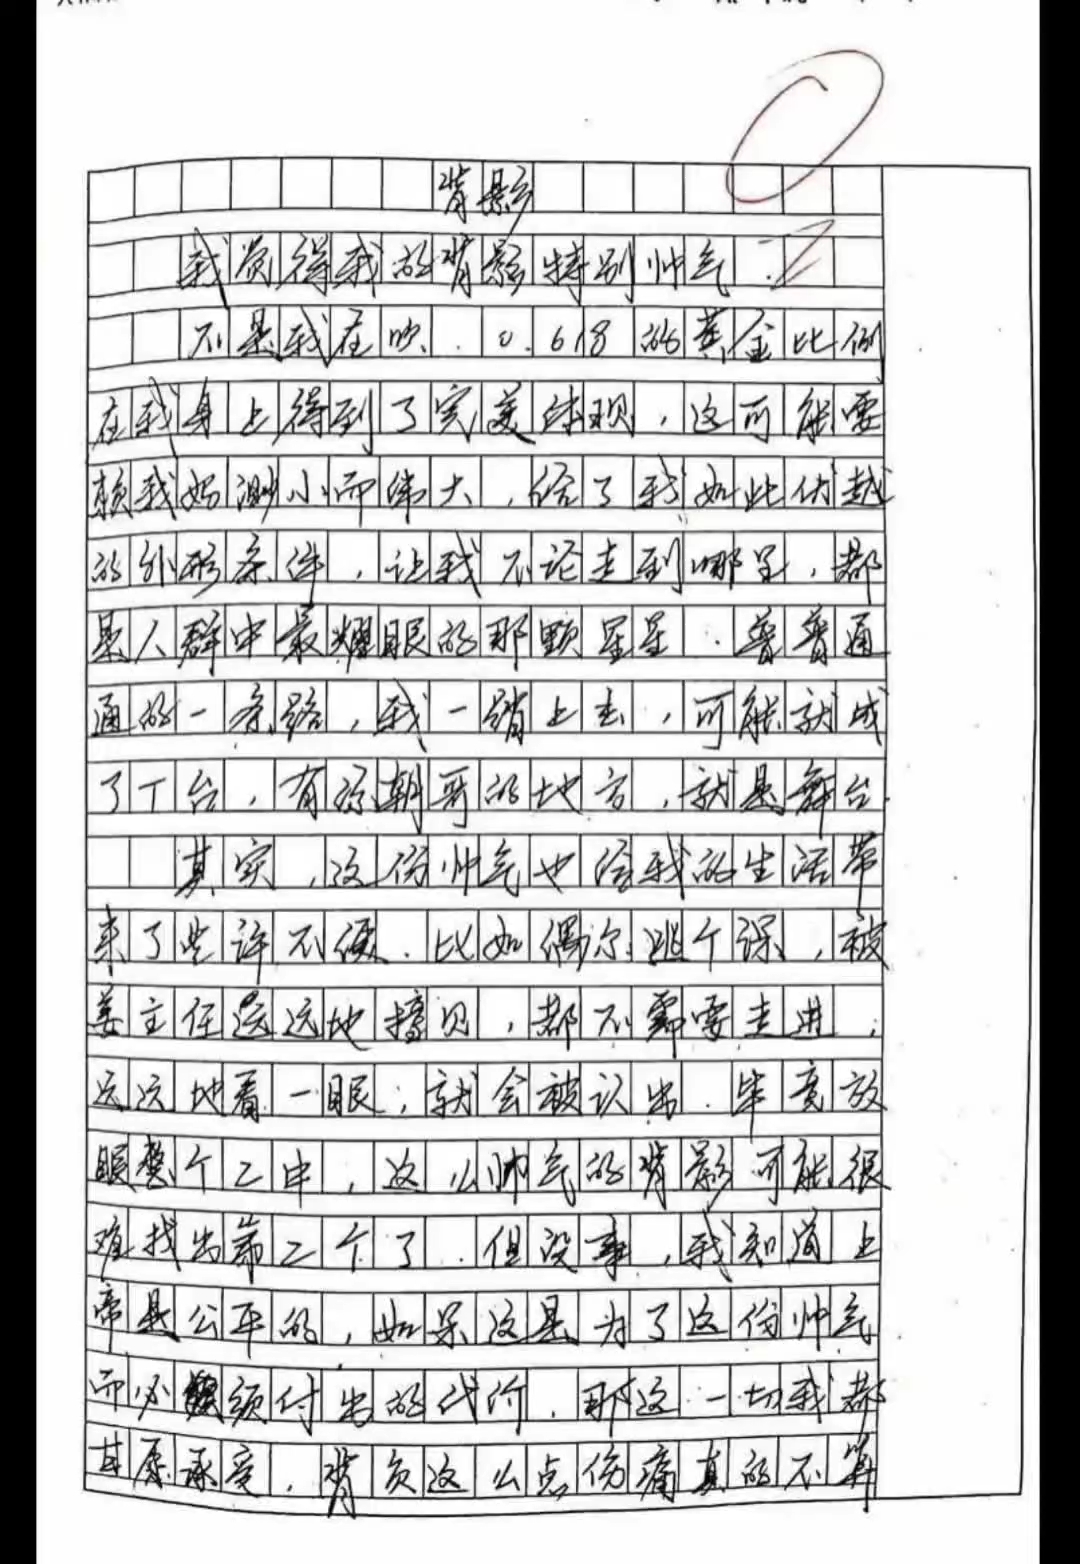 背影
我觉得我的背影特别帅气.
不是我在吹.0.618的黄金比例
在我身上得到了完美体现,这可能要
赖我妈渺小而伟大,给了我如此优越
的外形条件,让我不论走到哪里,都
是人群中最耀眼的那颗星星.普普通
通的一条路,我一踏上去,可能就成
了T台,有涼朝哥的地方,就是舞台.
其实,这份帅气也给我的生活带
来了些许不便.比如偶尔逃个课,被
姜主任远远地撞见,都不需要走进,
远远地看一眼,就会被认出.毕竟放
眼整个二中,这么帅气的背影可能很
难找出第二个了.但没事,我知道上
帝是公平的,如果这是为了这份帅气
而必须付出的代价,那这一切我都
甘愿承受,背负这么点伤痛真的不算